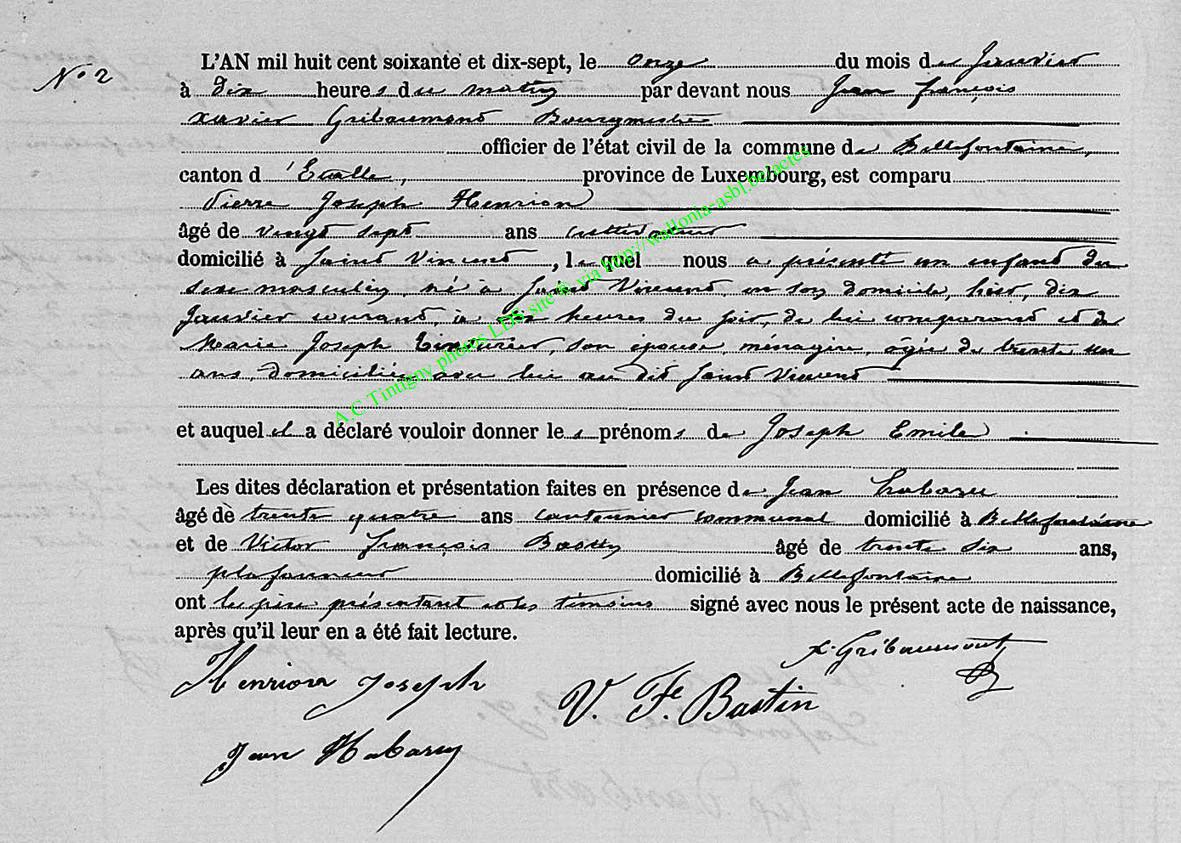 N° 2
L'AN mil huit cent soixante et dix-sept, le onze du mois de Janvier
à dix heures du matin par devant nous Jean françois
xavier Gribaumont Bourgmestre
officier de l'état civil de la commune de Bellefontaine,
canton d'Etalle, province de Luxembourg, est comparu
Pierre Joseph Henrion
âgé de vingt sept ans cultivateur
domicilié à Saint Vincent, lequel nous a présenté un enfant du
sexe masculin, né à Saint Vincent, en son domicile, hier, dix
Janvier courant, à heures du soir, de lui comparant et de
Marie Joseph son épouse, ménagère, âgée de trente un
ans, domiciliée avec lui au dit Saint Vincent
et auquel il a déclaré vouloir donner les prénoms de Joseph Emile
Les dites déclaration et présentation faites en présence de Jean habaru
âgé de trente quatre ans cantonnier communal domicilié à Bellefontaine
et de Victor françois Bastin âgé de trente six ans,
plafonneur domicilié à Bellefontaine
ont le père présentant et les témoins signé avec nous le présent acte de naissance,
après qu'il leur en a été fait lecture.
Henrion Joseph
V. Fs Bastin
x. Gribaumont
Jean Habaru
A.C Tintigny photos LDS site & via http://wallonia-asbl.be/actes